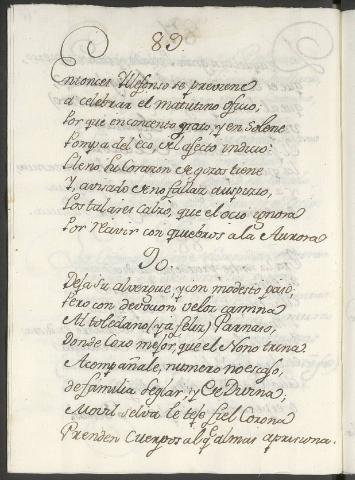 89.
Entonces Ildefonso se previene
a celebrar el matutino oficio;
Por que en concento grato, y en Solene
Pompa del Eco, de el afecto indicio:
Lleno su Corazon de gozos tiene
Y, avisado de no falláz auspizio,
Los talares calze, que el ocio ignora
Por Recivir con quiebros a la Aurora
9.
Deja su alvergue, y con modesto paso;
Pero con devocion velós camina
Al toledano (ya feliz) Parnaso,
Donde Coro mejor, que el Nono trina
Acompañale, numero no escaso,
de familia Seglar, y Ex Divina;
Movil selva le teje fiel Corona
Prenden Cuerpos al q̃ almas aprisiona.